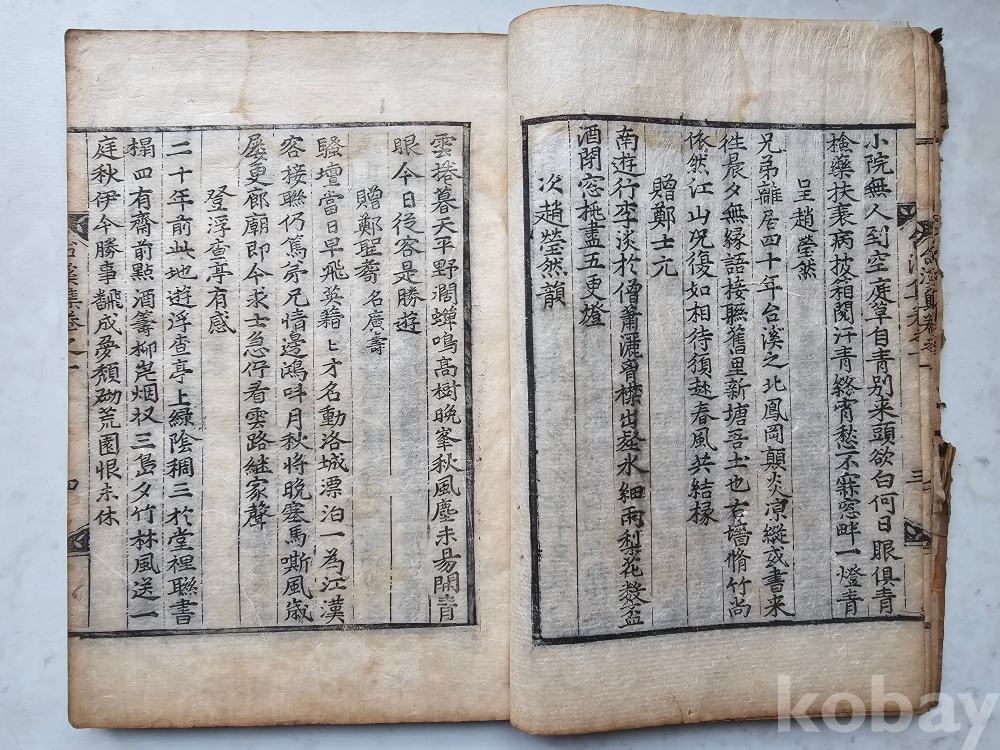 小院無人到空庭草自青別来頭欲白何日眼俱青
撿藥扶衰病披箱閱汗青終宵愁不寐窓畔一燈青
呈趙瑩然
兄弟離居四十年台溪之北鳳岡顛炎凉縱或書来
徃晨夕無緣語接聯舊里新塘吾土也右墻脩竹尚
依然江山况復如相待須趂春風共結椽
贈鄭士元
南遊行李淡於僧蕭灑胷襟出壑水細雨梨花數盃
酒閉窓挑盡五更燈
次趙瑩然韻
三
雲捲暮天平野濶蟬鳴高樹晩峯秋風塵未易開青
眼今日從容是勝遊
贈鄭聖耈 名廣壽
騷壇當日早飛英籍〻才名動洛城漂泊一為江漢
容接聯仍篤弟兄情邊鴻呌月秋將晩塞馬嘶風歲
屡更廊廟即今求士急佇看雲路継家聲
登浮査亭有感
二十年前此地遊浮査亭上綠陰稠三於堂裡聯書
榻四有齋前點酒籌柳岸烟收三島夕竹林風送一
庭秋伊今勝事飜成憂頹砌荒園恨未休
台溪集卷之一
四
kobay